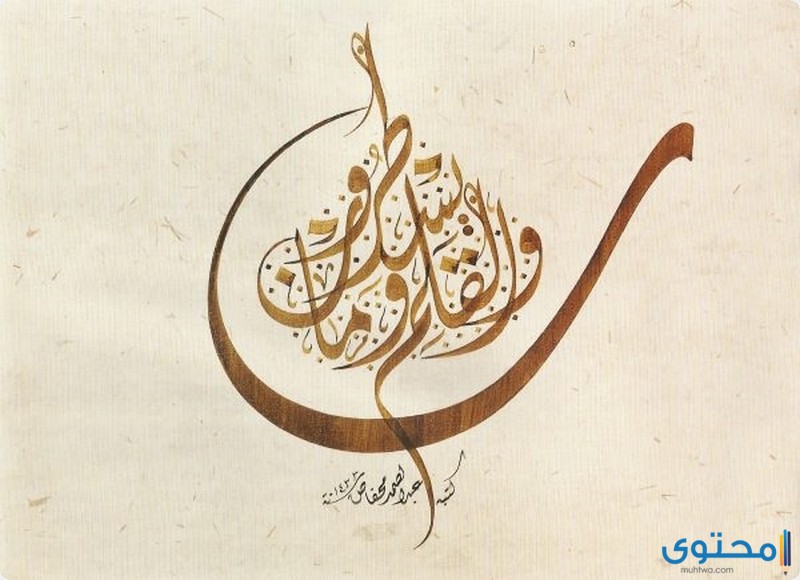 ن والقلم وما يسطرون
كتبه عبد الصمد محفاض سنة ١٤٣٣
محتوى
muhtwa.com